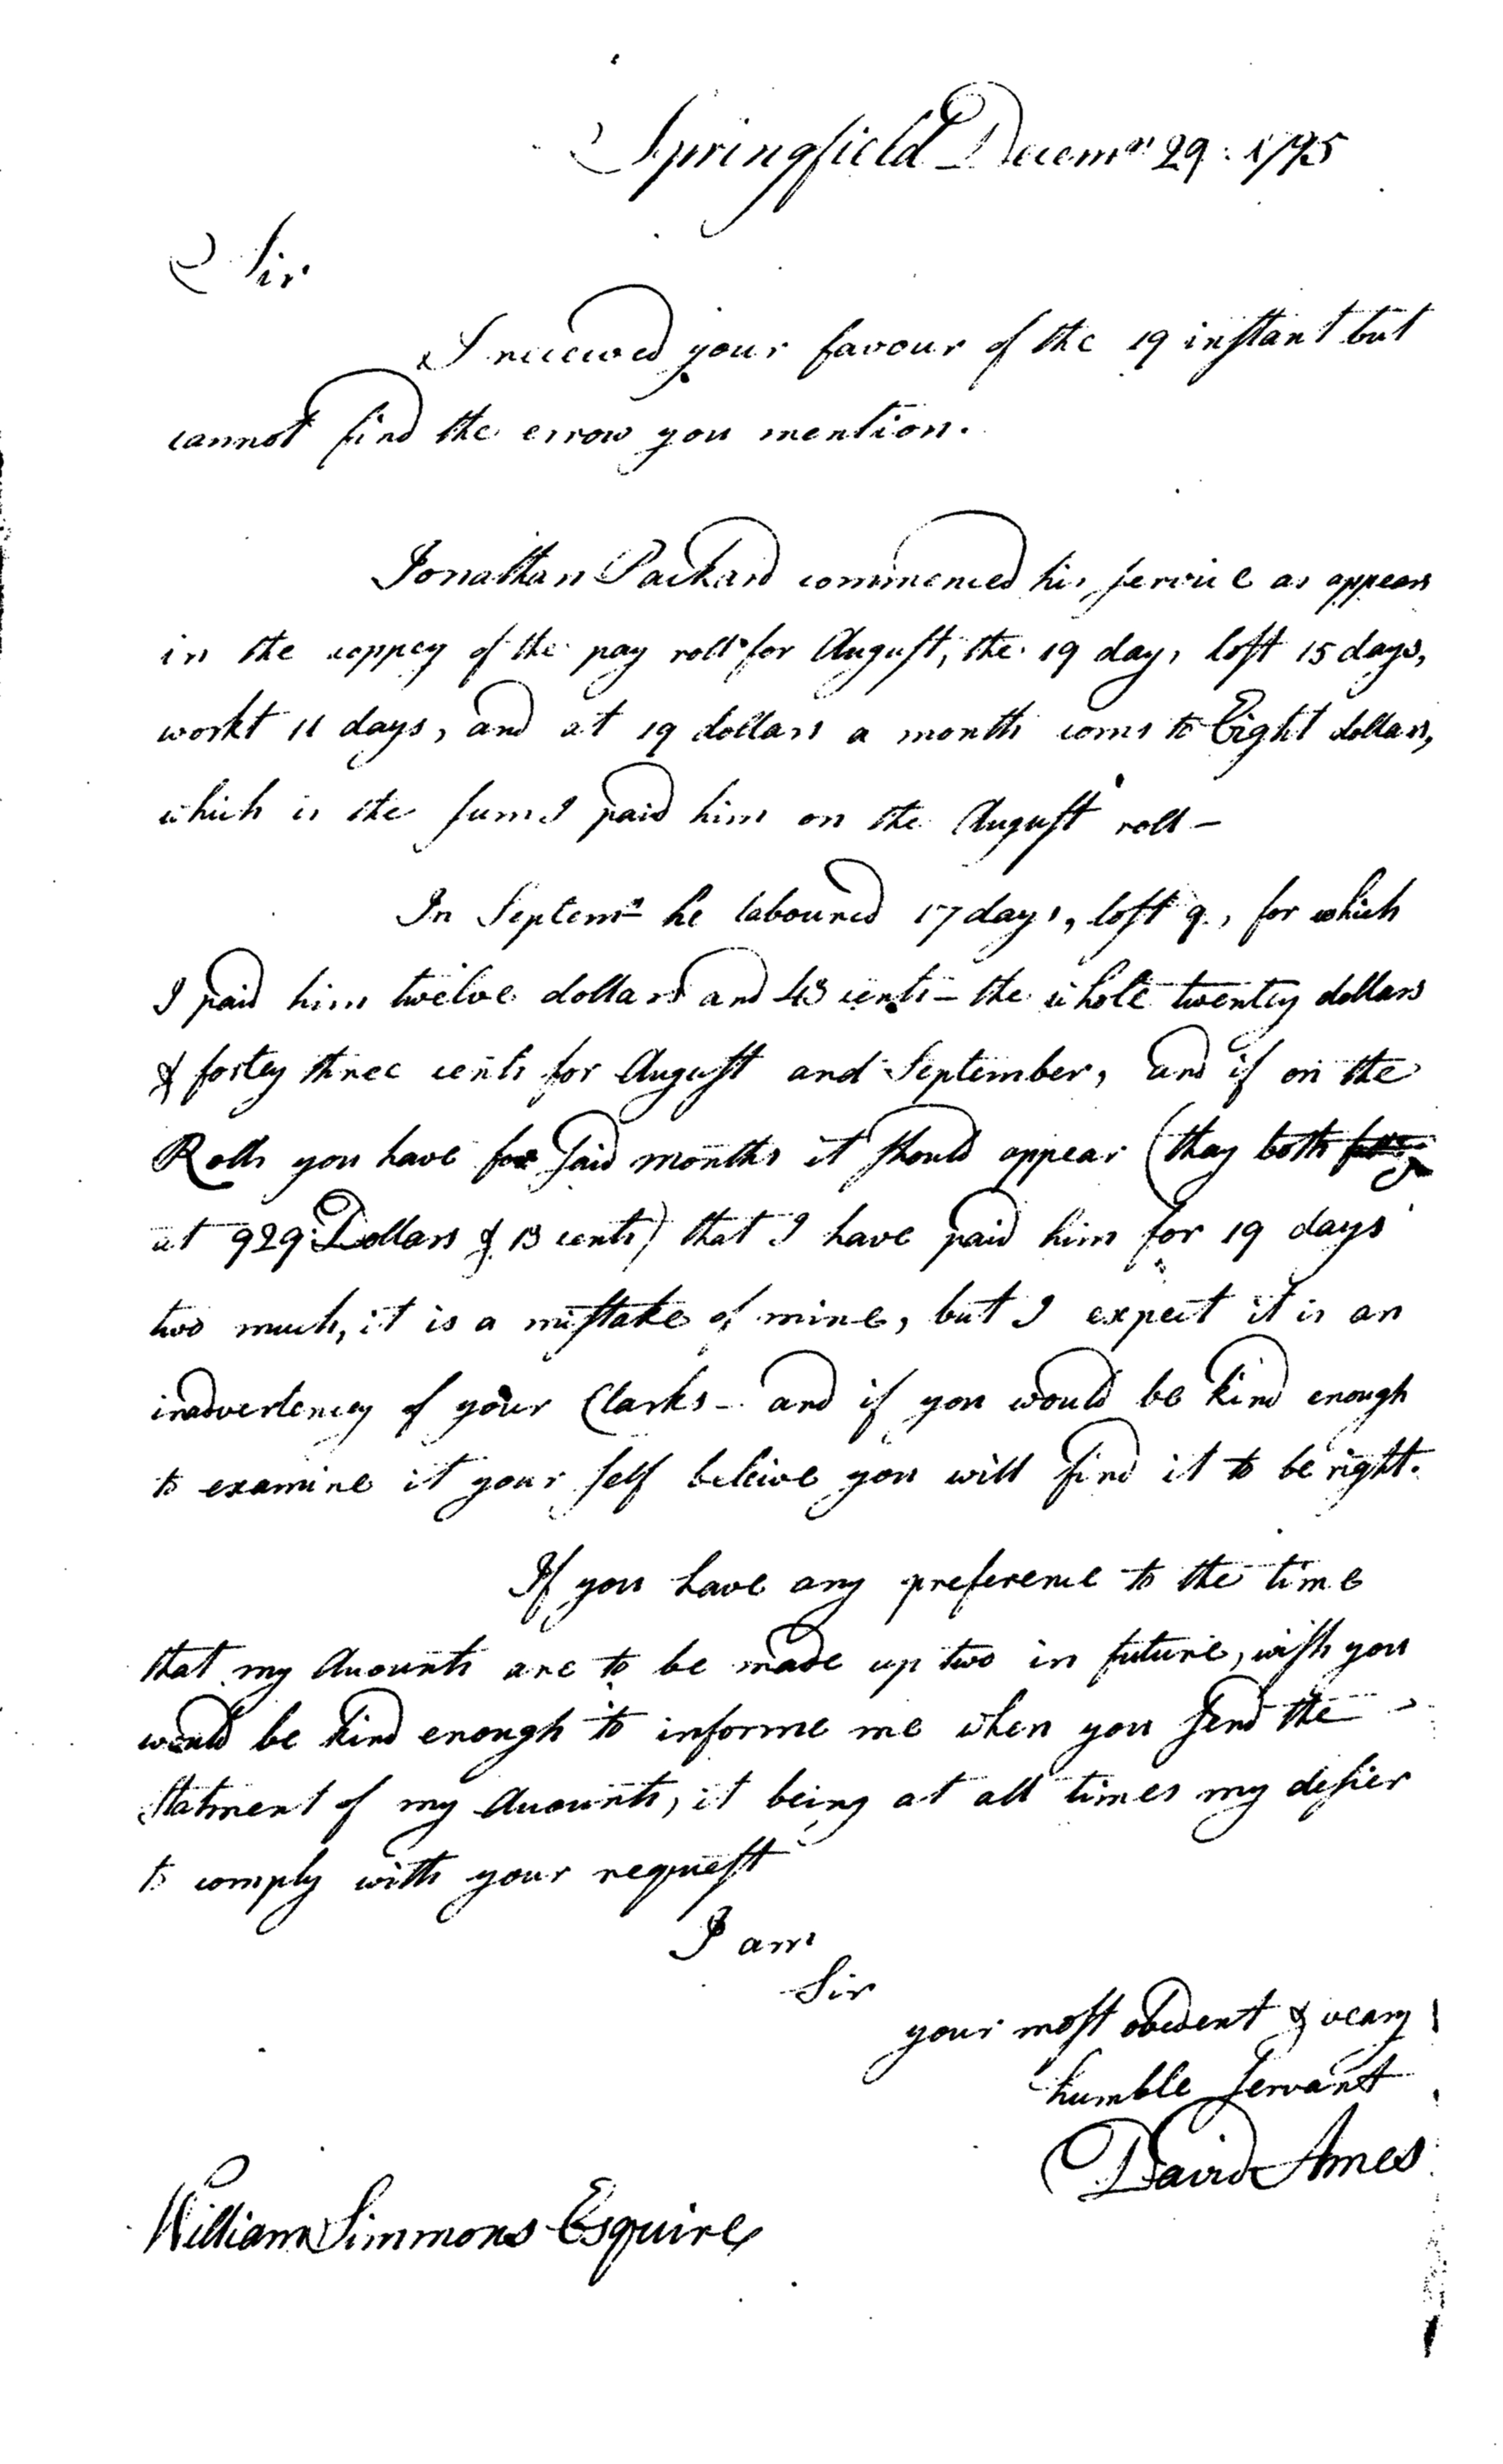 Springfield Decemr 29. 1795
Sir
I received your favour of the 19 instant but
cannot find the errow you mention.
Jonathan Packard commenced his service as appears
in the coppey of the pay roll for August, the 19 day, lost 15 days,
workt 11 days, and at 19 dollars a month coms to Eight dollars,
which is the sum I paid him on the August roll –
In Septemr he laboured 17 days, lost 9, for which
I paid him twelve dollars and 43 cents – the whole twenty dollars
& fortey three cents for August and September, and if on the
Rolls you have for said months it should appear (thay both
at 929 Dollars & 13 cents) that I have paid him for 19 days
two much, it is a mistake of mine, but I expect it is an
inadvertencey of your Clarks – and if you would be kind enough
to examine it your self beleive you will find it to be right.
If you have any preference to the time
that my Accounts are to be made up two in future, wish you
would be kind enough to informe me when you send the
Statment of my Accounts, it being at all times my desier
to comply with your request
I am
Sir
your most obedent & veary
humble servant
David Ames
William Simmons Esquire